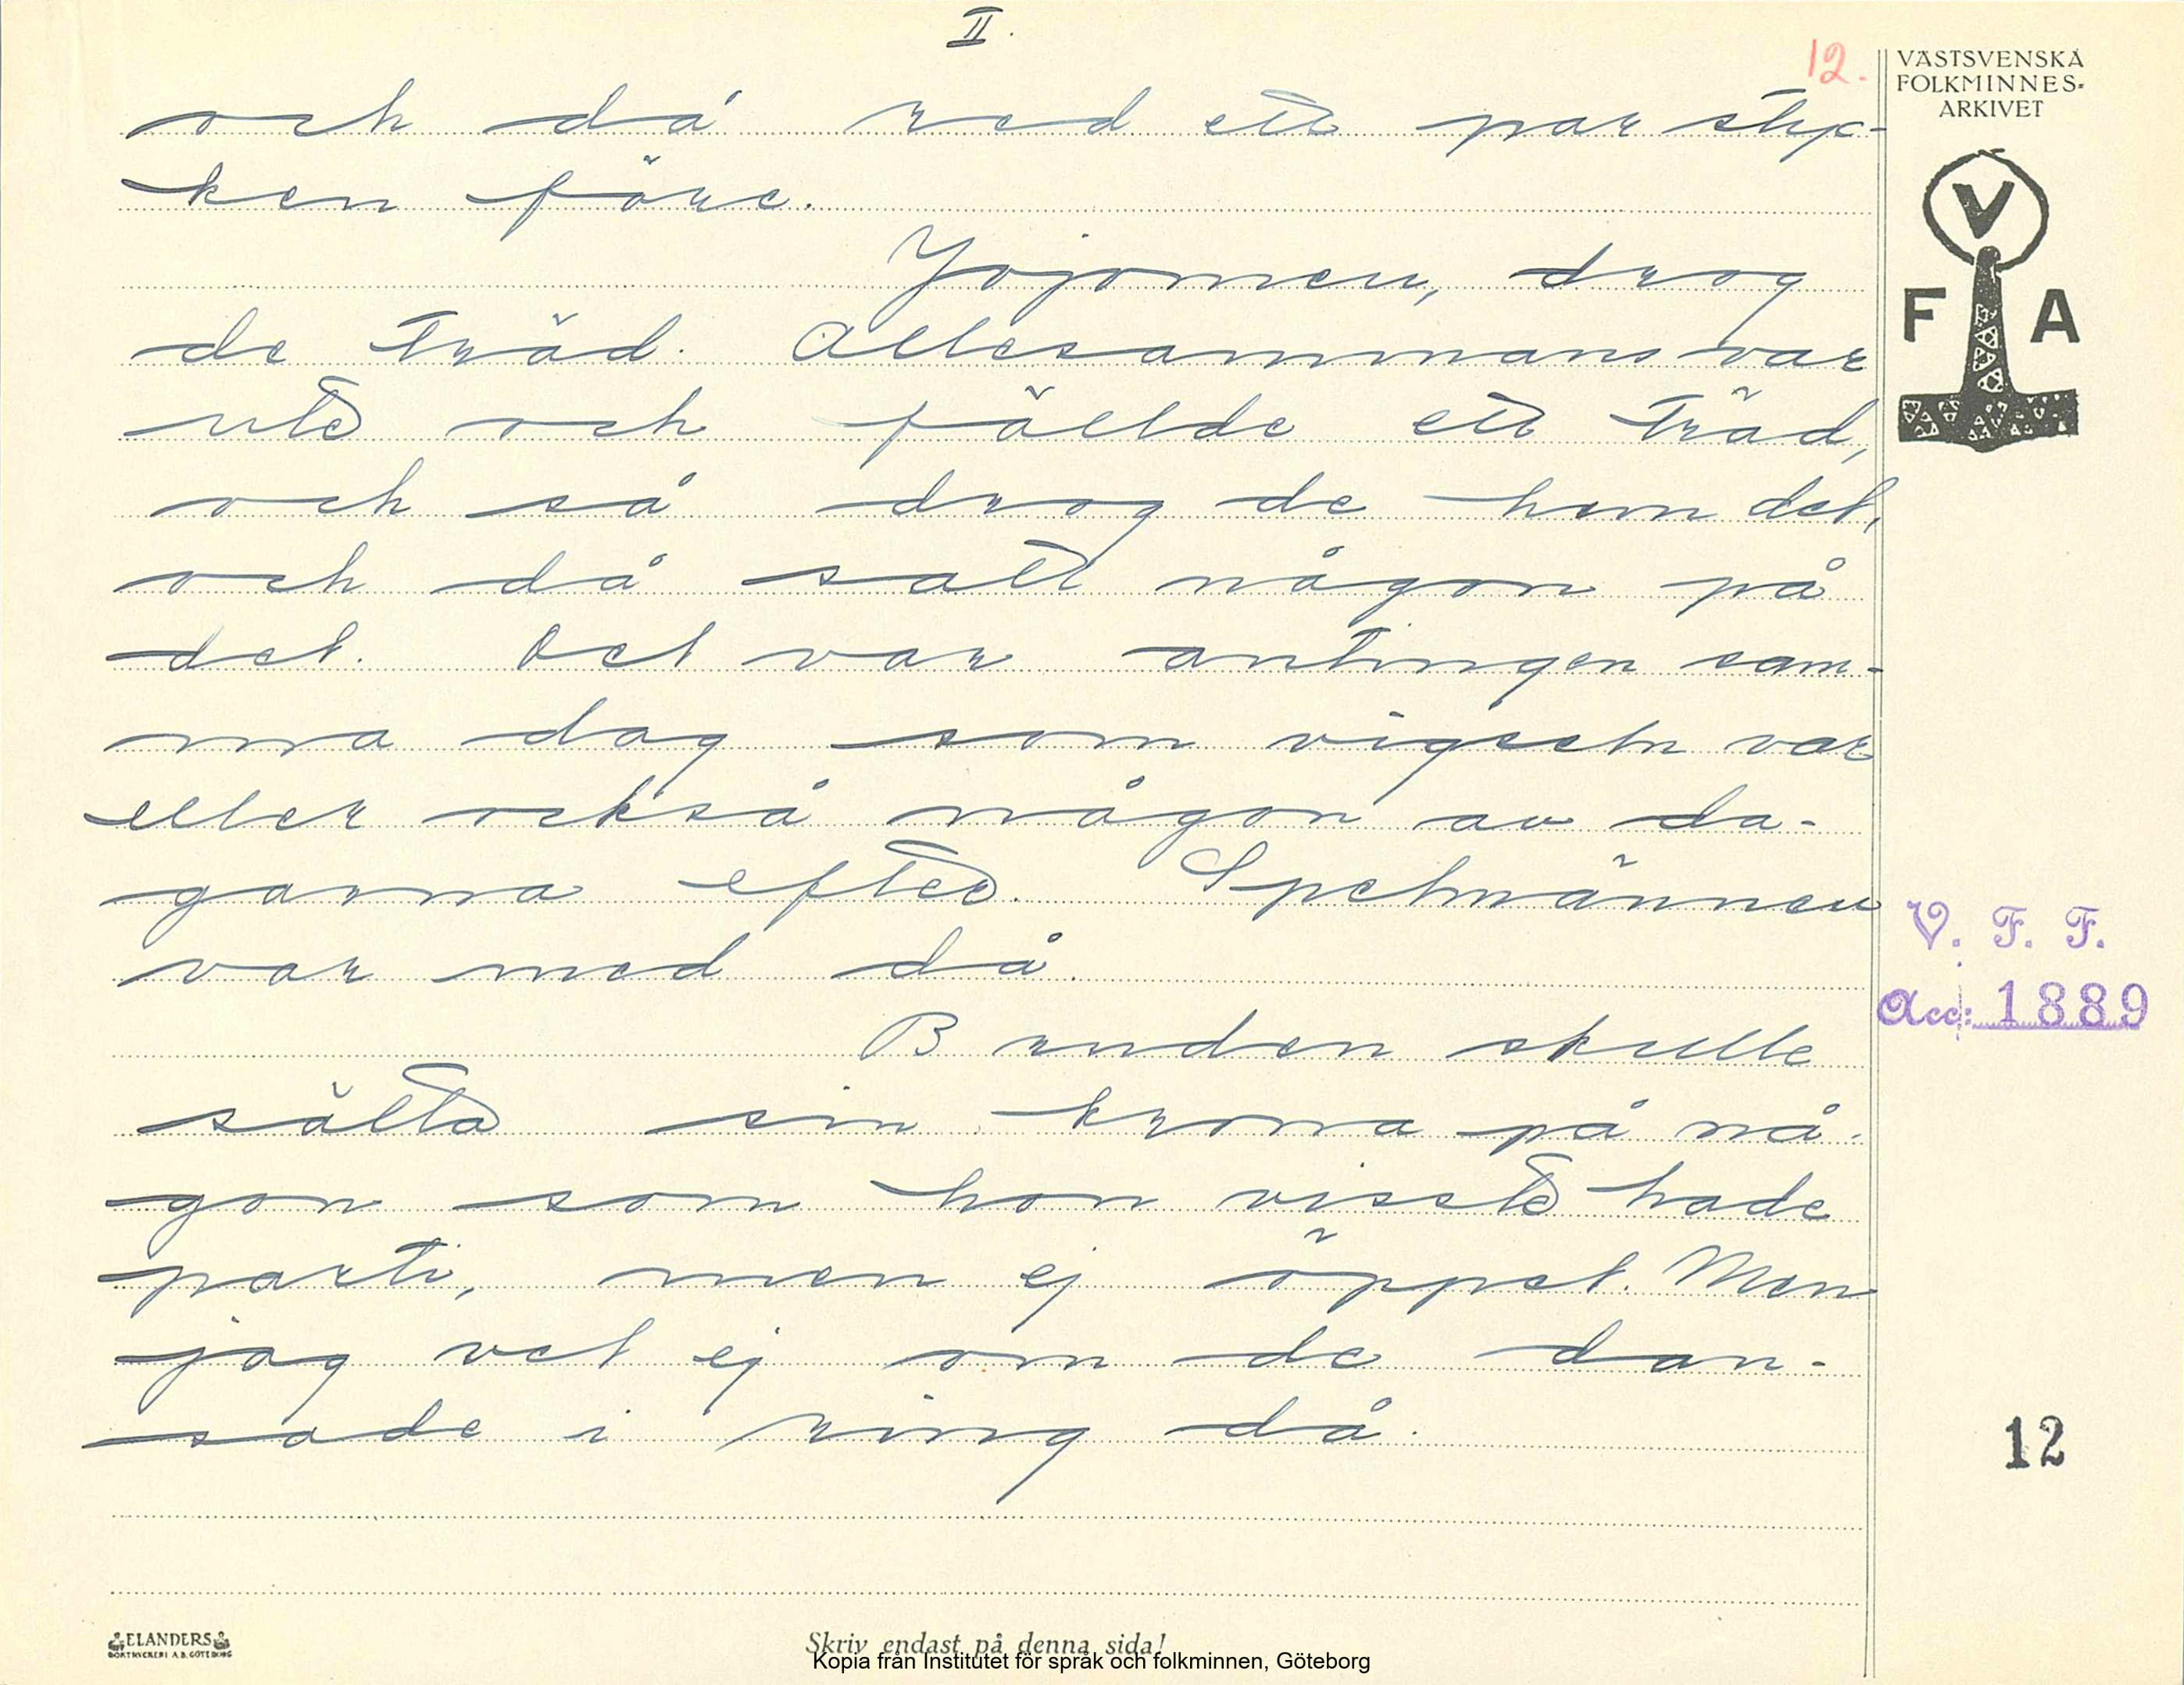 II.
12.
VÄSTSVENSKA
FOLKMINNES-
ARKIVET
V
F A
och då red ett par styc-
ken före.
Jojomen, drog
de träd. Allesammans var
ute och fällde ett träd,
och så drog de hem det,
och då satt någon på
det. Det var antingen sam-
ma dag som vigseln var
eller också någon av da-
garna efter. Spelmännen
var med då.
V. F. F.
Acc: 1889
Bruden skulle
sätta sin krona på nå-
gon som hon visste hade
parti, men ej öppet. Men
jag vet ej om de dan-
sade i ring då.
12
ELANDERS
BOKTRYCKERI A.B. GÖTEBORG
Skriv endast på denna sida!
Kopia från Institutet för språk och folkminnen, Göteborg